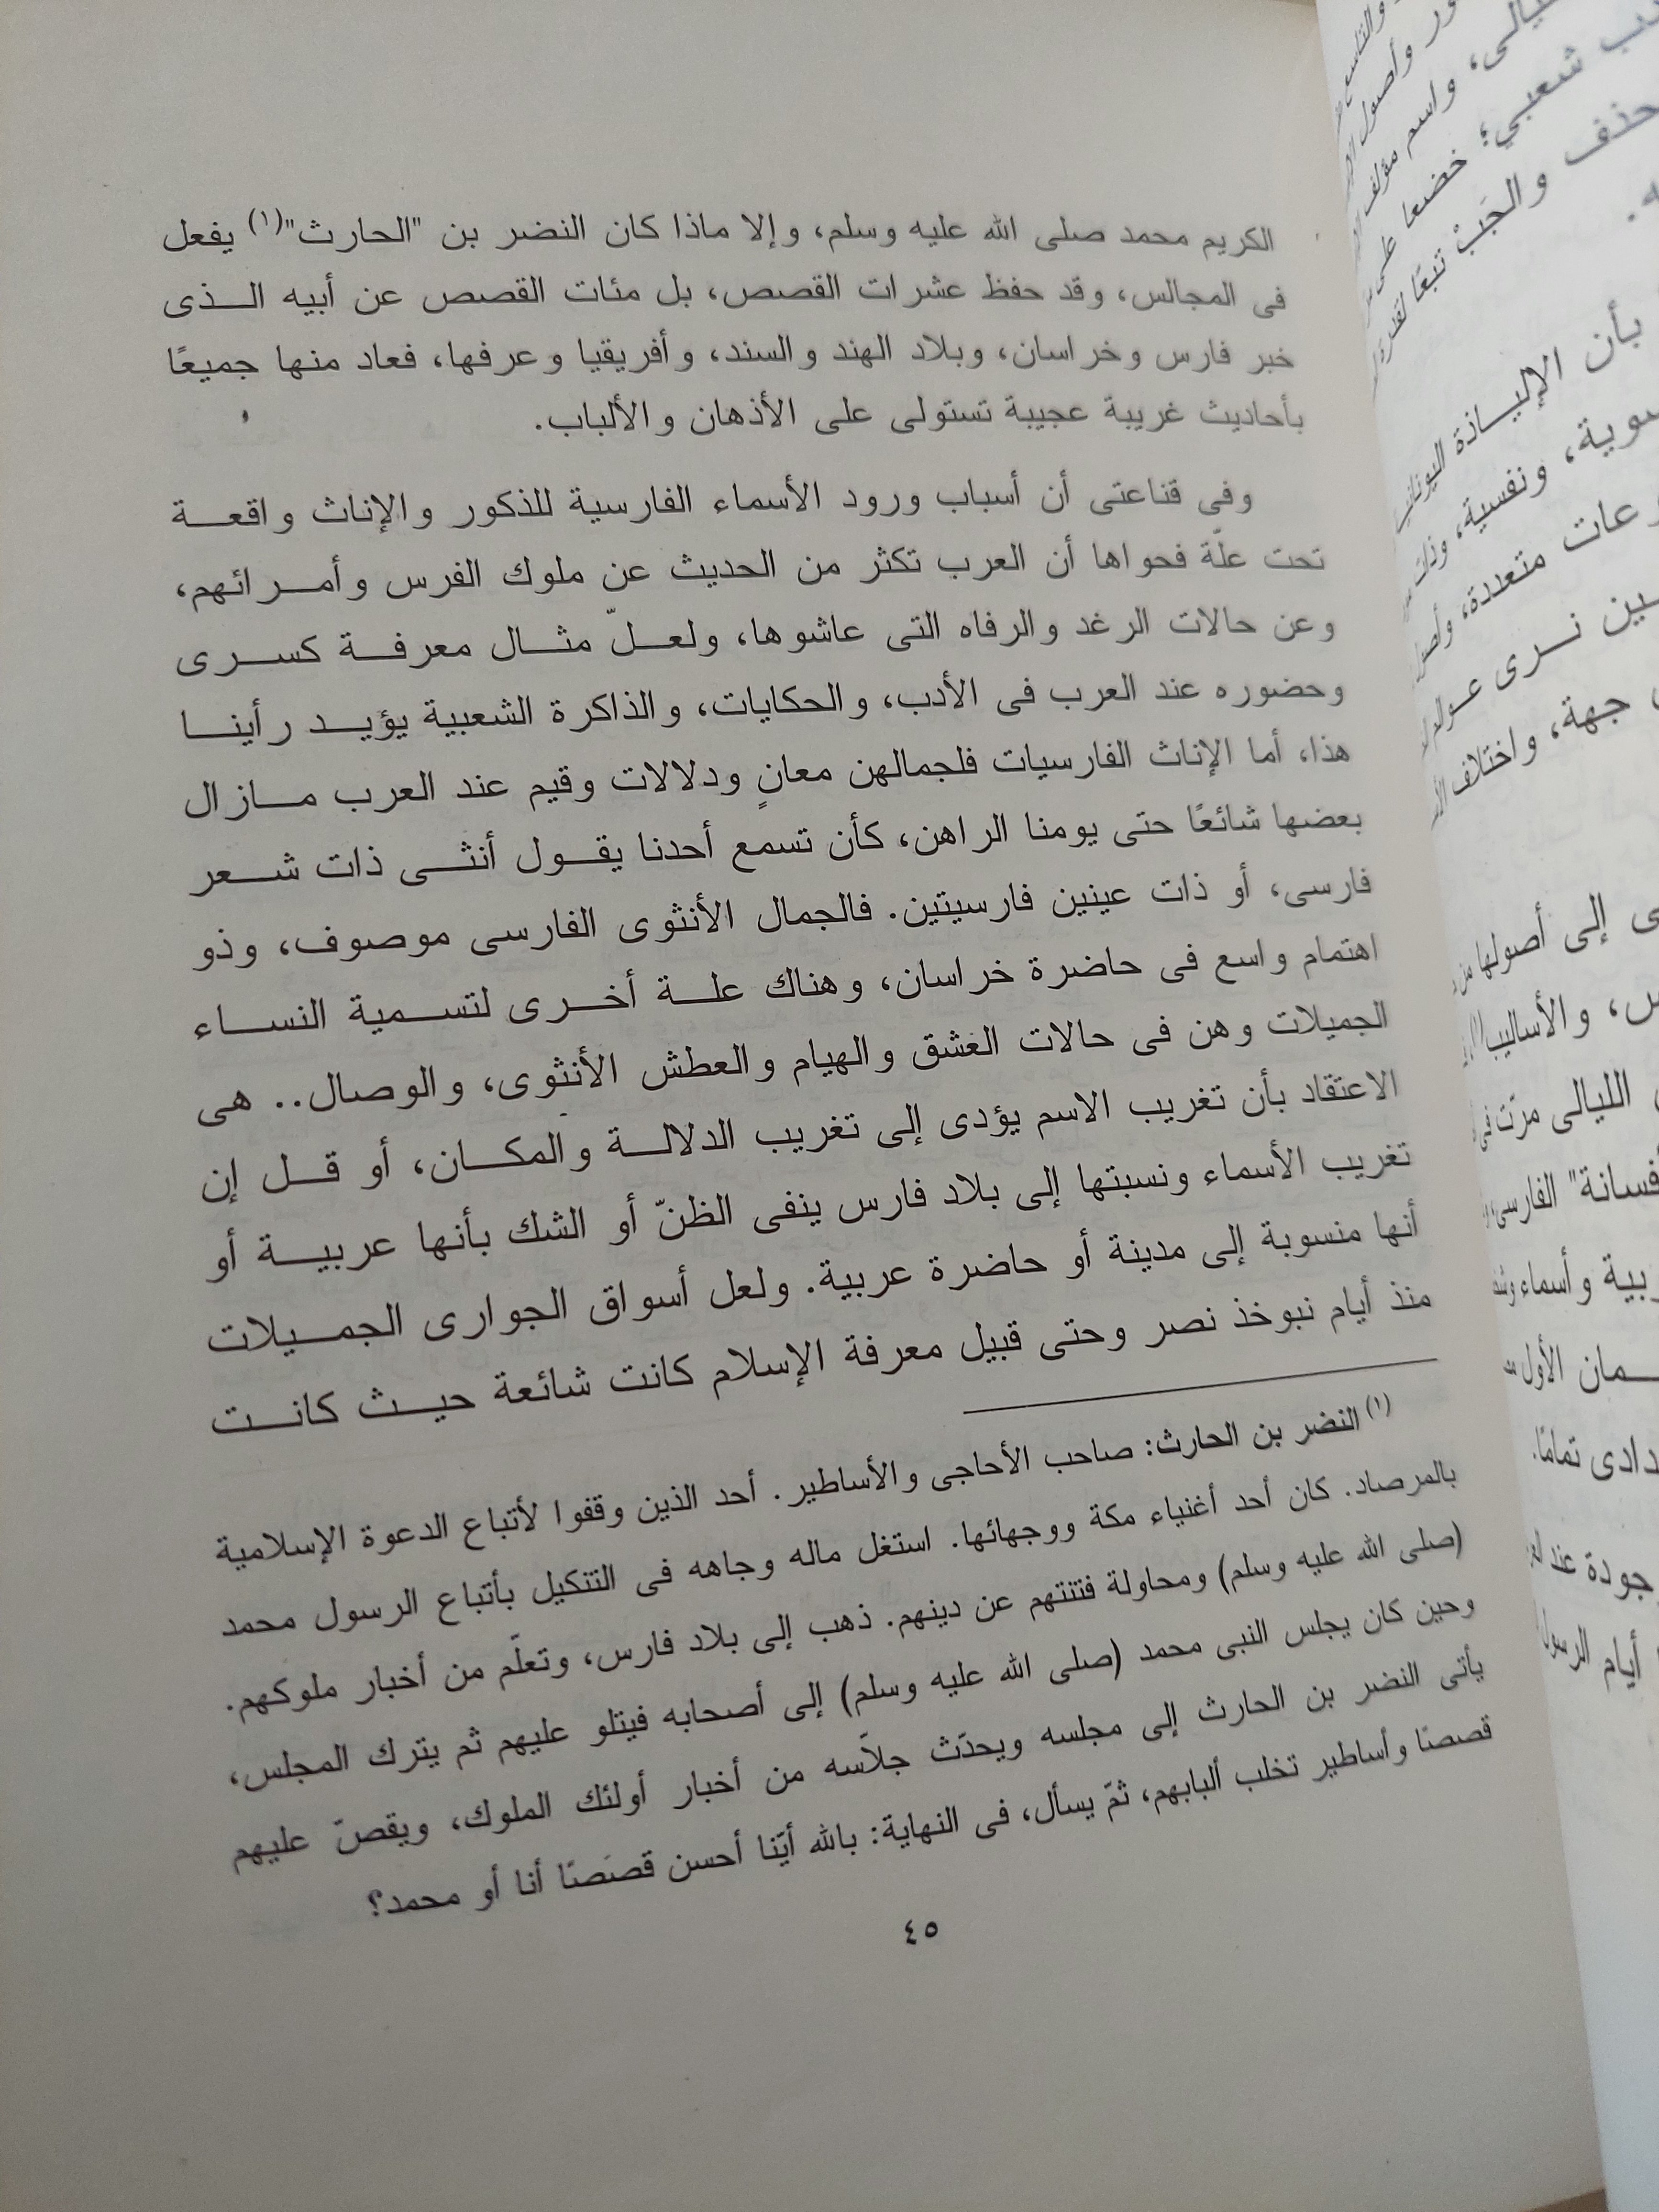 الكريم محمد صلى الله عليه وسلم، وإلا ماذا كان النضر بن "الحارث"(١) يفعل
فى المجالس، وقد حفظ عشرات القصص، بل مئات القصص عن أبيه الذى
خبر فارس وخراسان، وبلاد الهند والسند، وأفريقيا وعرفها، فعاد منها جميعًا
بأحاديث غريبة عجيبة تستولى على الأذهان والألباب.
وفى قناعتى أن أسباب ورود الأسماء الفارسية للذكور والإناث واقعة
تحت علّة فحواها أن العرب تكثر من الحديث عن ملوك الفرس وأمرائهم،
وعن حالات الرغد والرفاه التى عاشوها، ولعلّ مثال معرفة كسرى
وحضوره عند العرب فى الأدب، والحكايات، والذاكرة الشعبية يؤيد رأينا
هذا، أما الإناث الفارسيات فلجمالهن معانٍ ودلالات وقيم عند العرب مازال
بعضها شائعًا حتى يومنا الراهن، كأن تسمع أحدنا يقول أنثى ذات شعر
فارسى، أو ذات عينين فارسيتين. فالجمال الأنثوى الفارسى موصوف، وذو
اهتمام واسع فى حاضرة خراسان، وهناك علة أخرى لتسمية النساء
الجميلات وهن فى حالات العشق والهيام والعطش الأنثوى، والوصال.. هى
الاعتقاد بأن تغريب الاسم يؤدى إلى تغريب الدلالة والمكان، أو قل إن
تغريب الأسماء ونسبتها إلى بلاد فارس ينفى الظنّ أو الشك بأنها عربية أو
أنها منسوبة إلى مدينة أو حاضرة عربية. ولعل أسواق الجوارى الجميلات
منذ أيام نبوخذ نصر وحتى قبيل معرفة الإسلام كانت شائعة حيث كانت
(١) النضر بن الحارث: صاحب الأحاجى والأساطير. أحد الذين وقفوا لأتباع الدعوة الإسلامية
بالمرصاد. كان أحد أغنياء مكة ووجهائها. استغل ماله وجاهه فى التنكيل بأتباع الرسول محمد
(صلى الله عليه وسلم) ومحاولة فتنتهم عن دينهم. ذهب إلى بلاد فارس، وتعلّم من أخبار ملوكهم.
وحين كان يجلس النبى محمد (صلى الله عليه وسلم) إلى أصحابه فيتلو عليهم ثم يترك المجلس،
يأتى النضر بن الحارث إلى مجلسه ويحدّث جلاّسه من أخبار أولئك الملوك، ويقصّ عليهم
قصصًا وأساطير تخلب ألبابهم، ثمّ يسأل، فى النهاية: بالله أيّنا أحسن قصَصًا أنا أو محمد؟
٤٥
شعبي؛ خضعا على
حذف والجَبْ تبعًا
بأن الإلياذة
ونفسية،
متعددة،
نرى
جهة، واختلاف
إلى أصولها
والأساليب
الليالى مرّت فى
الفارسى
وأسماء
الأول
تمامًا.
عند
أيام الرسول